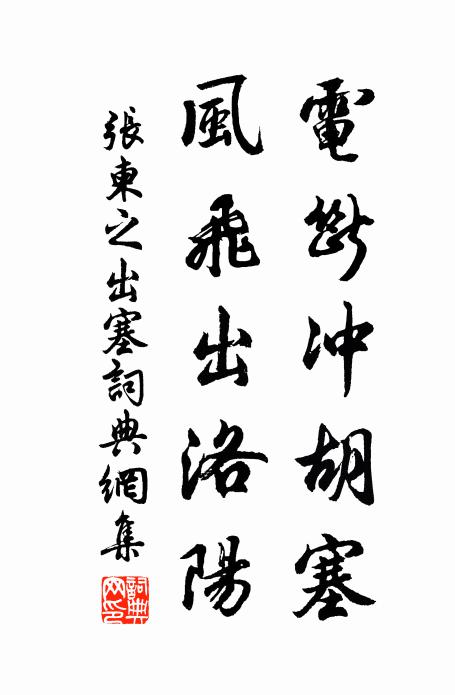 電斷冲胡塞
風飛出洛陽
張柬之出塞詞典網集
詞典網印